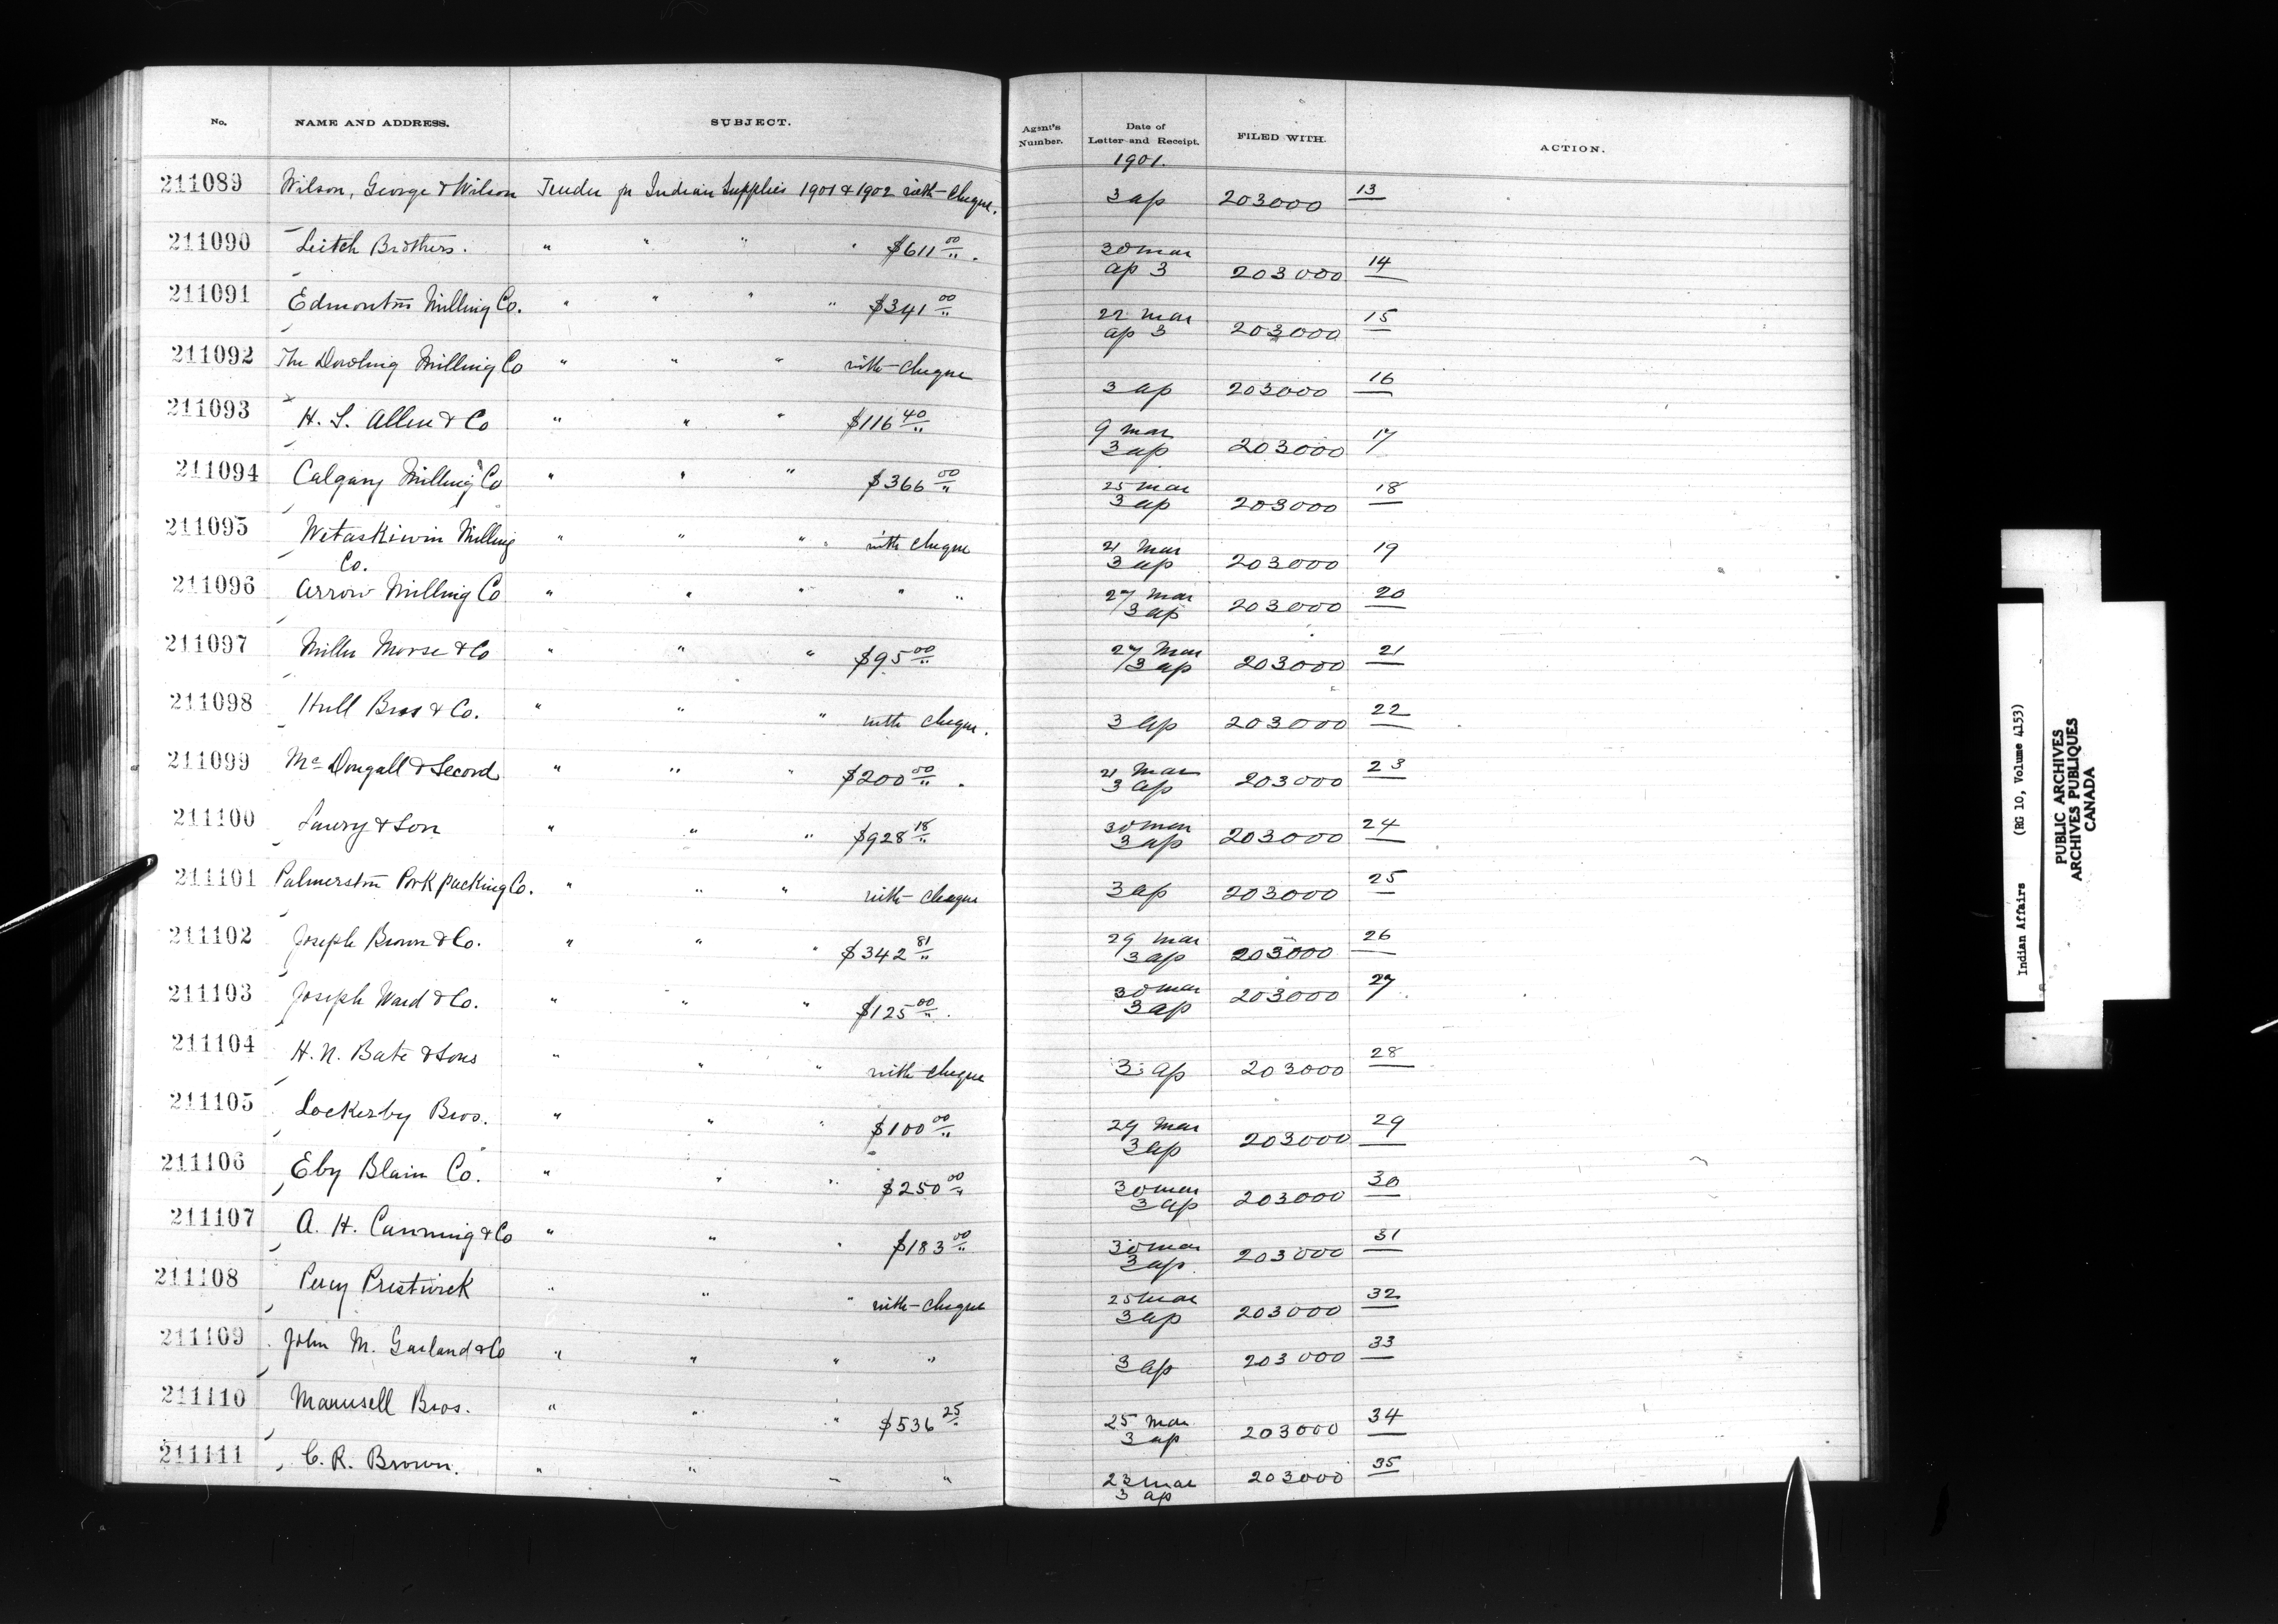 No. NAME AND ADDRESS. SUBJECT. Agent's Number. Date of Letter and Receipt. FILED WITH. ACTION.
1901.
211089 Wilson, George & Wilson Tender for Indian Supplies 1901 & 1902 with cheque. 3 ap 203000 13
211090 Leitch Brothers. " " " " $611 00 30 mar ap 3 203000 14
211091 Edmonton Milling Co. " " " " $341 00 22 mar ap 3 203000 15
211092 The Dowling Milling Co " " " with cheque 3 ap 203000 16
211093 H. S. Allen & Co " " " $116 40 9 mar 3 ap 203000 17
211094 Calgary Milling Co " " " $366 00 25 mar 3 ap 203000 18
211095 Wetaskiwin Milling Co. " " " " with cheque 21 Mar 3 ap 203000 19
211096 Arrow Milling Co " " " " " 27 Mar 3 ap 203000 20
211097 Miller Morse & Co " " " $95 00 27 Mar 3 ap 203000 21
211098 Hull Bros & Co. " " " with cheque. 3 ap 203000 22
211099 McDougall & Secord " " " $200 00 21 Mar 3 ap 203000 23
211100 Lowry & Son " " " $928 18 30 mar 3 ap 203000 24
211101 Palmerston Pork packing Co. " " " with cheque 3 ap 203000 25
211102 Joseph Brown & Co. " " " $342 81 29 mar 3 ap 203000 26
211103 Joseph Ward & Co. " " " $125 00 30 mar 3 ap 203000 27
211104 H. N. Bate & Sons " " " with cheque 3 ap 203000 28
211105 Lockerby Bros. " " " $100 00 29 Mar 3 ap 203000 29
211106 Eby Blain Co. " " " $250 00 30 mar 3 ap 203000 30
211107 A. H. Canning & Co " " " $183 00 30 mar 3 ap 203000 31
211108 Percy Prestwick " " " with cheque 25 mar 3 ap 203000 32
211109 John M. Garland & Co " " " " 3 ap 203000 33
211110 Maunsell Bros. " " " $536 25 25 Mar 3 ap 203000 34
211111 C. R. Brown. " " " " 23 mar 3 ap 203000 35
Indian Affairs (RG 10, Volume 4153)
PUBLIC ARCHIVES
ARCHIVES PUBLIQUES
CANADA